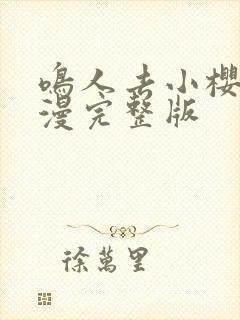 鳴人去小櫻
漫完整版
徐萬里